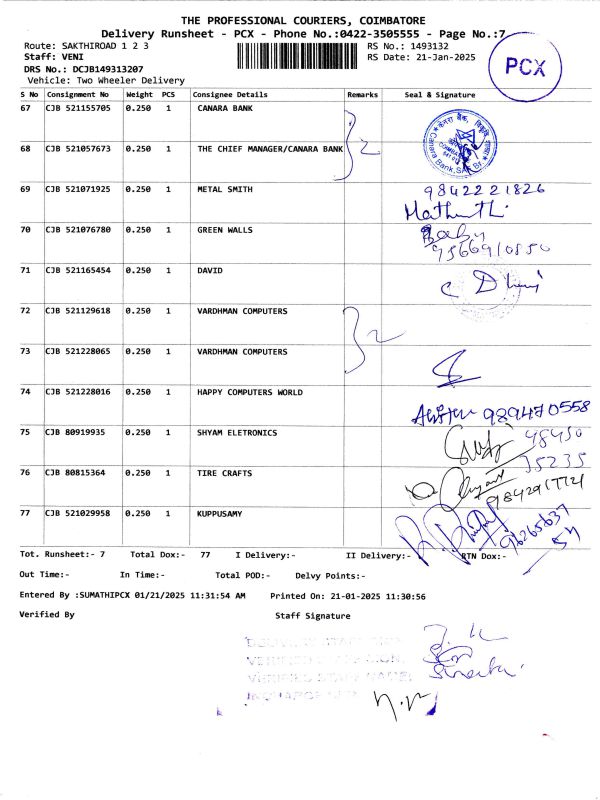 THE PROFESSIONAL COURIERS, COIMBATORE
Delivery Runsheet - PCX - Phone No.:0422-3505555 - Page No.:7
Route: SAKTHIROAD 1 2 3
RS No.: 1493132
Staff: VENI
RS Date: 21-Jan-2025
DRS No.: DCJB149313207
Vehicle: Two Wheeler Delivery
PCX
S No Consignment No Weight PCS Consignee Details Remarks Seal & Signature
67 CJB 521155705 0.250 1 CANARA BANK
68 CJB 521057673 0.250 1 THE CHIEF MANAGER/CANARA BANK 2
Canara Bank
69 CJB 521071925 0.250 1 METAL SMITH 9842221826
70 CJB 521076780 0.250 1 GREEN WALLS
Baby
71 CJB 521165454 0.250 1 DAVID
72 CJB 521129618 0.250 1 VARDHMAN COMPUTERS 2
73 CJB 521228065 0.250 1 VARDHMAN COMPUTERS
74 CJB 521228016 0.250 1 HAPPY COMPUTERS WORLD
75 CJB 80919935 0.250 1 SHYAM ELETRONICS 98430
35235
76 CJB 80815364 0.250 1 TIRE CRAFTS
77 CJB 521029958 0.250 1 KUPPUSAMY
Tot. Runsheet:- 7 Total Dox:- 77 I Delivery:- II Delivery:- RTN Dox:-
Out Time:- In Time:- Total POD:- Delvy Points:-
Entered By :SUMATHIPCX 01/21/2025 11:31:54 AM Printed On: 21-01-2025 11:30:56
Verified By Staff Signature